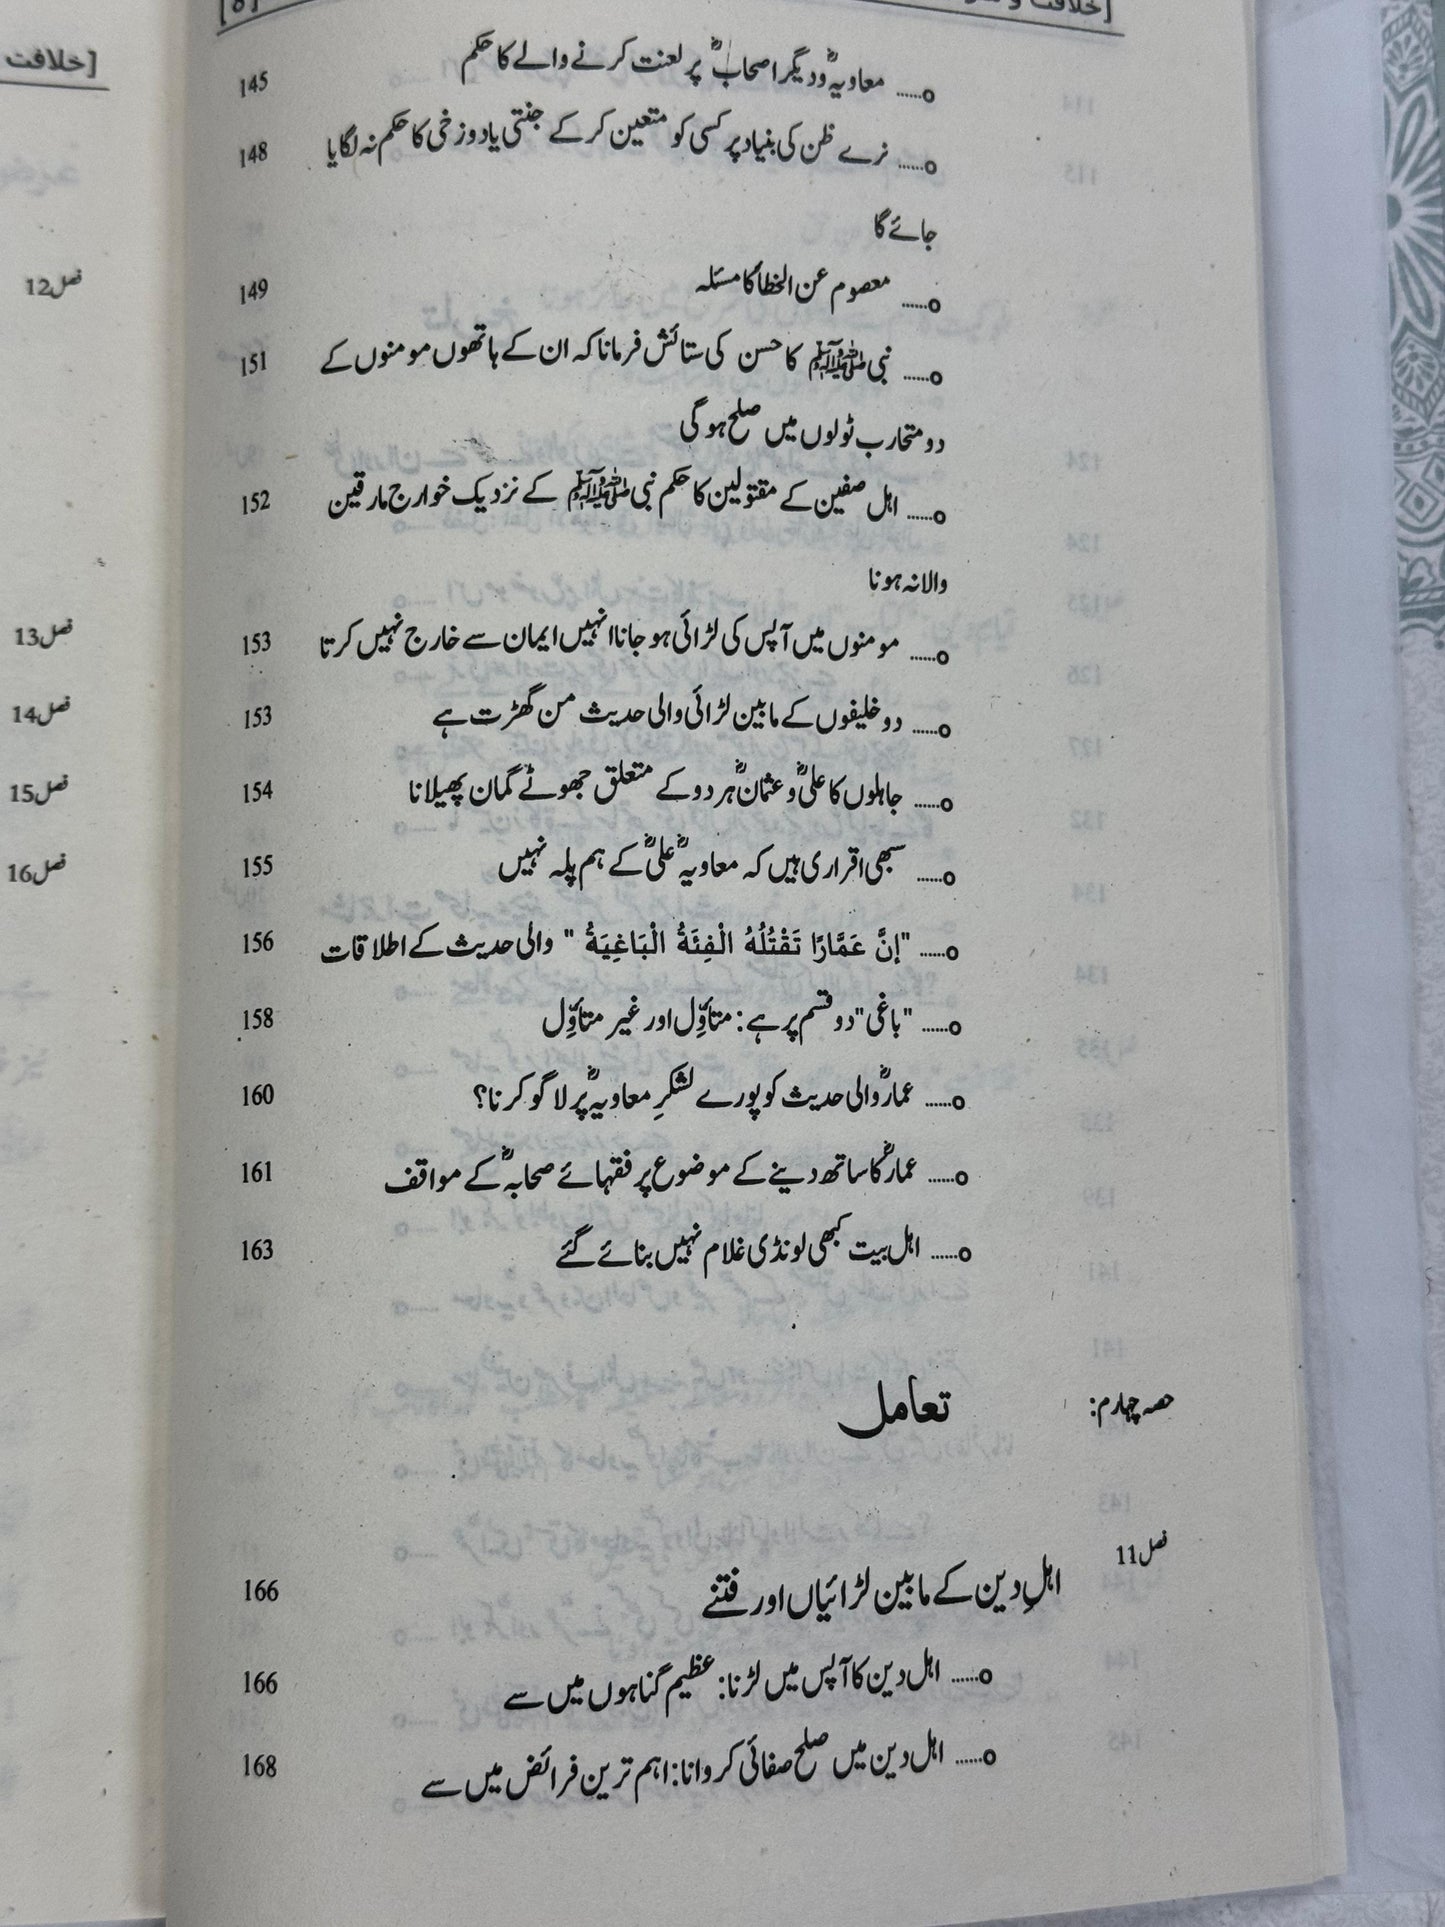 [خلافت و
8]
○...... معاویہؓ و دیگر اصحابؓ پر لعنت کرنے والے کا حکم 145
○...... نرے ظن کی بنیاد پر کسی کو متعین کر کے جنتی یا دوزخی کا حکم نہ لگایا 148
جائے گا
○...... معصوم عن الخطأ کا مسئلہ 149
○...... نبی ﷺ کا حسن کی ستائش فرمانا کہ ان کے ہاتھوں مومنوں کے 151
دو متحارب ٹولوں میں صلح ہوگی
○...... اہل صفین کے مقتولین کا حکم نبی ﷺ کے نزدیک خوارج مارقین 152
والا نہ ہونا
○...... مومنوں میں آپس کی لڑائی ہو جانا انہیں ایمان سے خارج نہیں کرتا 153
○...... دو خلیفوں کے مابین لڑائی والی حدیث من گھڑت ہے 153
○...... جاہلوں کا علیؓ و عثمانؓ ہر دو کے متعلق جھوٹے گمان پھیلانا 154
○...... سبھی اقراری ہیں کہ معاویہؓ علیؓ کے ہم پلہ نہیں 155
○...... "إِنَّ عَمَّارًا تَقْتُلُهُ الْفِئَةُ الْبَاغِيَةُ" والی حدیث کے اطلاقات 156
○...... "باغی" دو قسم پر ہے: متأوِّل اور غیر متأوِّل 158
○...... عمارؓ والی حدیث کو پورے لشکرِ معاویہؓ پر لاگو کرنا؟ 160
○...... عمارؓ کا ساتھ دینے کے موضوع پر فقہائے صحابہؓ کے مواقف 161
○...... اہل بیت کبھی لونڈی غلام نہیں بنائے گئے 163
حصہ چہارم: تعامل
فصل 11
اہلِ دین کے مابین لڑائیاں اور فتنے 166
○...... اہل دین کا آپس میں لڑنا: عظیم گناہوں میں سے 166
○...... اہل دین میں صلح صفائی کروانا: اہم ترین فرائض میں سے 168
[خلافت
فصل 12
فصل 13
فصل 14
فصل 15
فصل 16